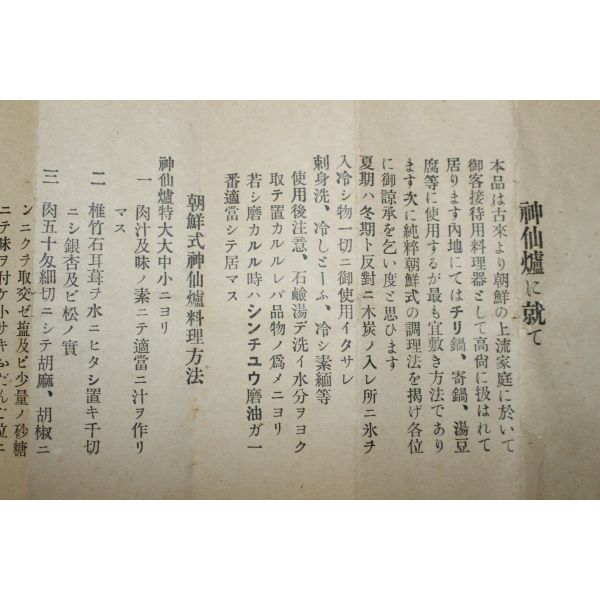 神仙爐に就て
本品は古來より朝鮮の上流家庭に於いて
御客接待用料理器として高尙に扱はれて
居ります內地にてはチリ鍋、寄鍋、湯豆
腐等に使用するが最も宜敷き方法であり
ます次に純粹朝鮮式の調理法を揭げ各位
に御諒承を乞い度と思ひます
夏期ハ冬期ト反對ニ木炭ノ入レ所ニ氷ヲ
入冷シ物一切ニ御使用イタサレ
刺身洗、冷しとーふ、冷シ素緬等
使用後注意、石鹼湯デ洗イ水分ヲヨク
取テ置カルレバ品物ノ爲メニヨリ
若シ磨カルル時ハシンチユウ磨油ガ一
番適當シテ居マス
朝鮮式神仙爐料理方法
神仙爐特大大中小ニヨリ
一 肉汁及味ノ素ニテ適當ニ汁ヲ作リ
マス
二 椎竹石耳茸ヲ水ニヒタシ置キ千切
ニシ銀杏及ビ松ノ實
三 肉五十匁細切ニシテ胡麻、胡椒ニ
ンニクヲ取交ゼ塩及ビ少量ノ砂糖
ニテ味ヲ付ケ小サキかだんご位ニ